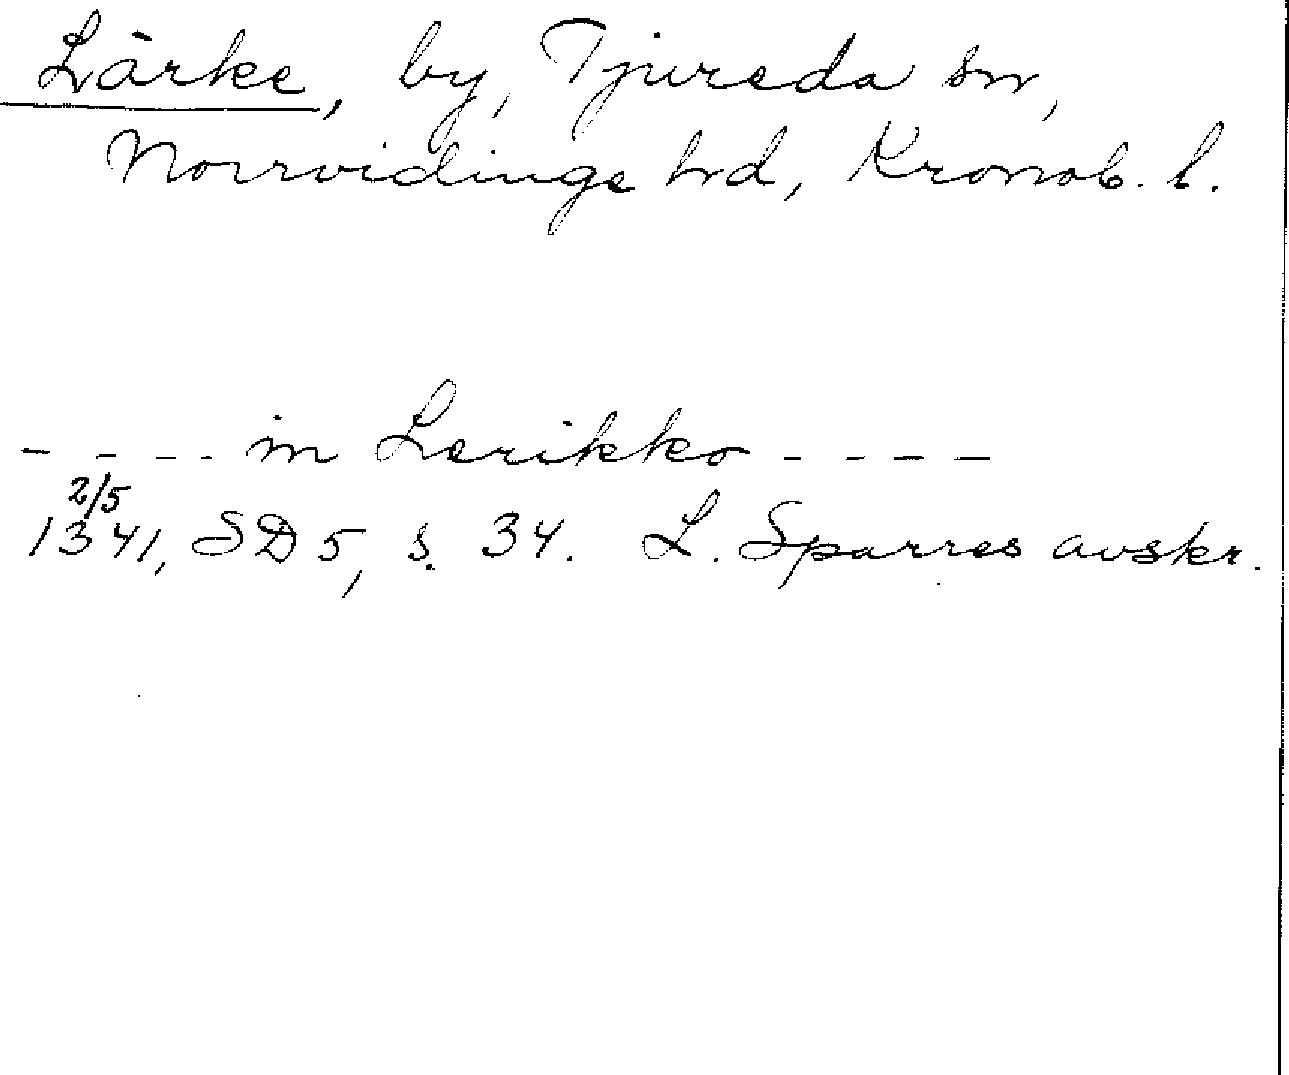 Lärke, by, Tjureda sn,
Norrvidinge hd, Kronob. l.
- - - - in Lerikko - - - -
2/5
1341, SD 5, s. 34. L. Sparres avskr.